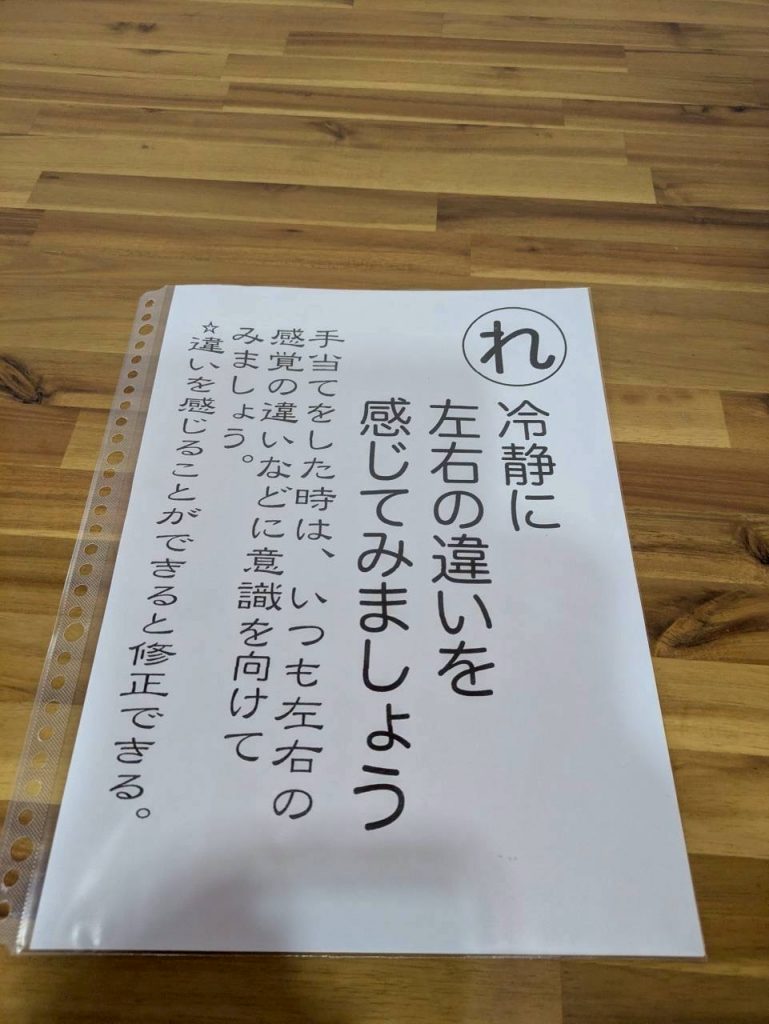 れ
冷静に
左右の違いを
感じてみましょう
手当てをした時は、いつも左右の
感覚の違いなどに意識を向けて
みましょう。
☆違いを感じることができると修正できる。